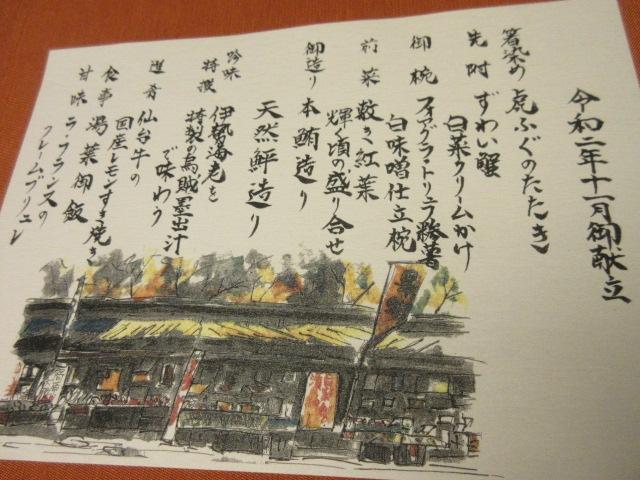 令和二年十一月御献立
箸染め 虎ふぐのたたき
先附 ずわい蟹
白菜クリームかけ
御椀 フォアグラ・トリュフ 勝薯
白味噌仕立椀
前菜 敷き紅葉
輝く頃の盛り合せ
御造り 本鮪造り
天然鮃造り
吟味
特撰 伊勢海老を
特製の烏賊墨出汁
で味わう
進肴 仙台牛の
国産レモンすき焼き
食事 湯葉御飯
甘味 ラ・フランスの
ブレームブリュレ